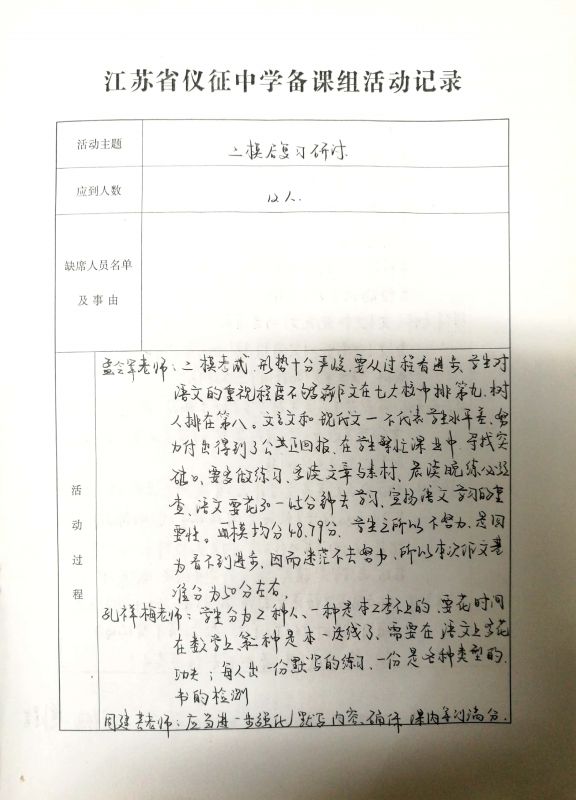 江苏省仪征中学备课组活动记录
活动主题
二模后复习研讨
应到人数
12人.
缺席人员名单
及事由
活动过程
老师：二模考试,形势十分严峻,要从过程看进步,学生对
语文的重视程度不够,作文在七大校中排第九,树
人排在第八。文言文和现代文一不代表学生水平差,努
力付出得到了公正回报,在学生繁忙课业中,寻找突
破口,要多做练习,多读文章与素材,晨读晚练必须
查,语文要花30-45分钟去学习,宣扬语文学习的重
要性。二模均分48.79分,学生之所以不努力,是因
为看不到进步,因而迷茫不去努力,所以本次作文基
准分为50分左右。
孔祥梅老师：学生分为2种人、一种是本二考不上的,要花时间
在数学上,第二种是本一达线了,需要在语文上多花
功夫；每人出一份默写的练习,一份是各种类型的
书的检测
周建老师：应当进一步强化默写内容,确保课内学问满分.